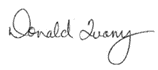 Donald Ivany